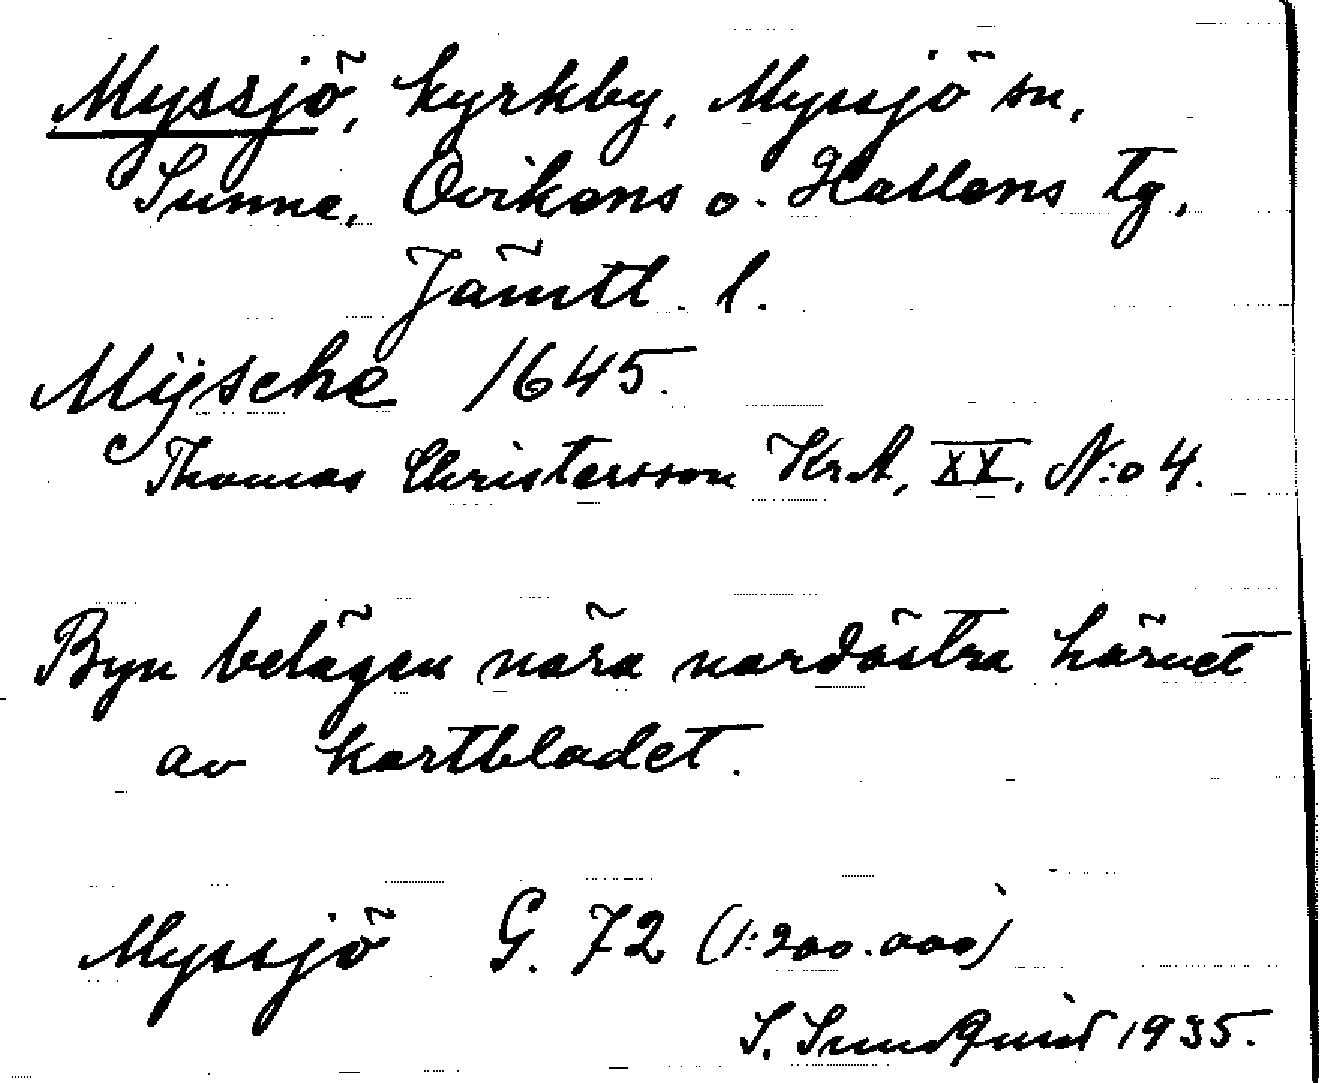 Myssjö, kyrkby, Myssjö sn,
Sunne, Ovikens o. Hallens tg,
Jämtl. l.
Mijsche 1645.
Thomas Christersson Kr.A, XX, N:o 4.
Byn belägen nära nordöstra hörnet
av kartbladet.
Myssjö G. 72 (1:200.000)
S. Sundquist 1935.